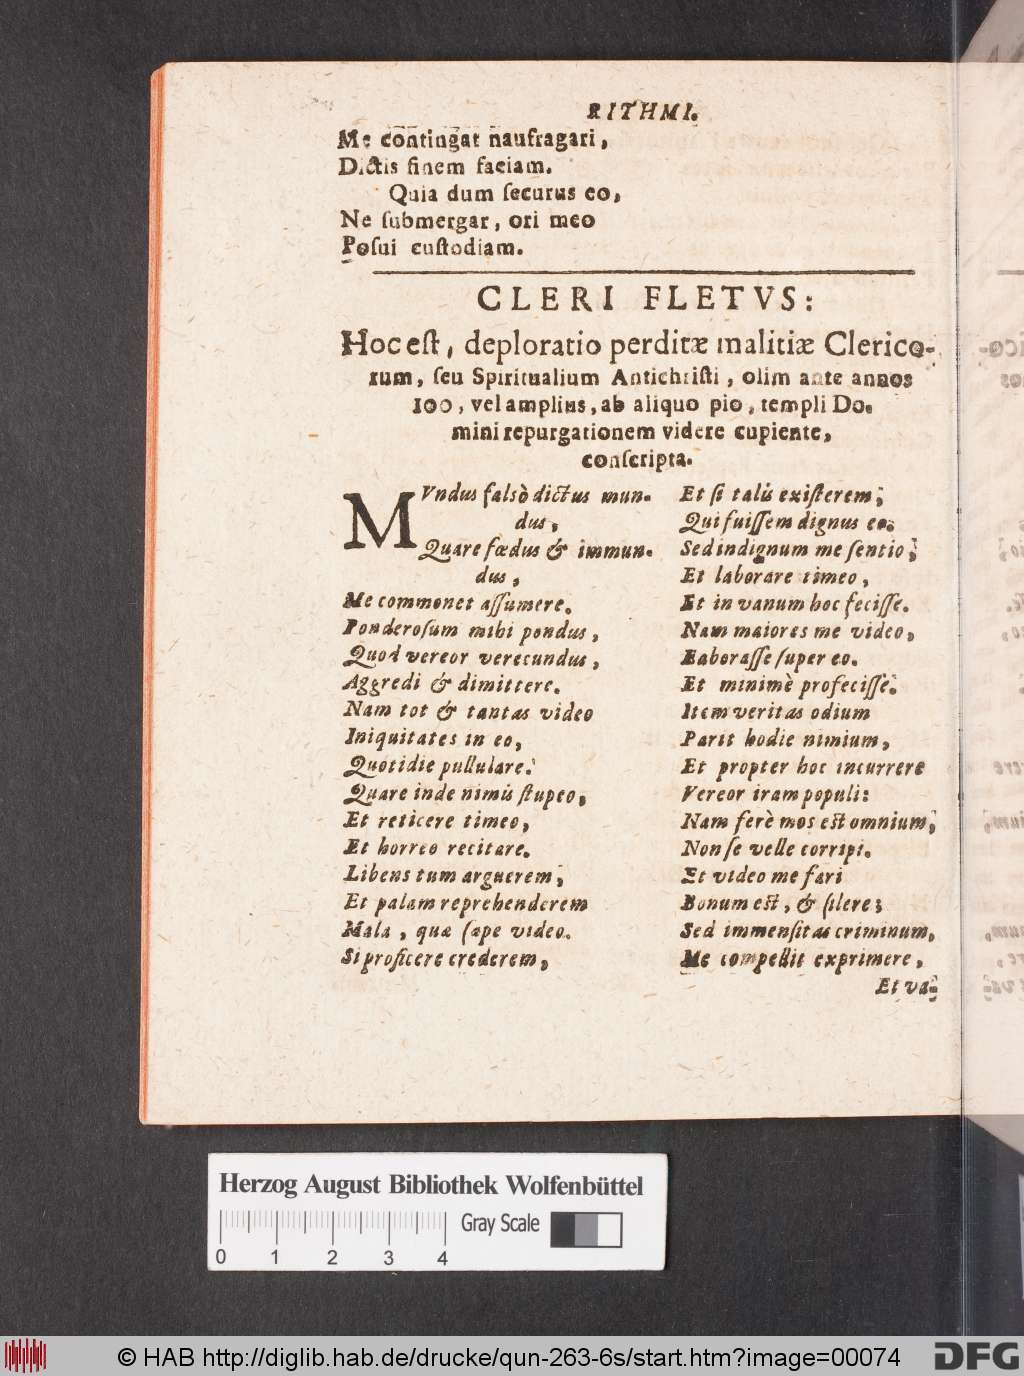 RITHMI.
Me contingat naufragari,
Dictis finem faciam.
Quia dum ſecurus eo,
Ne ſubmergar, ori meo
Poſui cuſtodiam.
CLERI FLETVS:
Hoc eſt, deploratio perditæ malitiæ Clerico-
rum, ſeu Spiritualium Antichriſti, olim ante annos
100, vel amplius, ab aliquo pio, templi Do-
mini repurgationem videre cupiente,
conſcripta.
MVndus falsò dictus mun-
dus,
Quare fœdus & immun-
dus,
Me commonet aſſumere.
Ponderoſum mihi pondus,
Quod vereor verecundus,
Aggredi & dimittere.
Nam tot & tantas video
Iniquitates in eo,
Quotidie pullulare:
Quare inde nimis ſtupeo,
Et reticere timeo,
Et horreo recitare.
Libens tum arguerem,
Et palam reprehenderem
Mala, quæ ſæpe video.
Si proficere crederem,
Et ſi talis exiſterem,
Qui fuiſſem dignus eo.
Sed indignum me ſentio,
Et laborare timeo,
Et in vanum hoc feciſſe.
Nam maiores me video,
Laboraſſe ſuper eo.
Et minimè profeciſſe.
Item veritas odium
Parit hodie nimium,
Et propter hoc incurrere
Vereor iram populi:
Nam ferè mos est omnium,
Non ſe velle corripi.
Et video me fari
Bonum est, & ſilere;
Sed immenſitas criminum,
Me compellit exprimere,
Et va-
Herzog August Bibliothek Wolfenbüttel
Gray Scale
0 1 2 3 4
© HAB http://diglib.hab.de/drucke/qun-263-6s/start.htm?image=00074
DFG